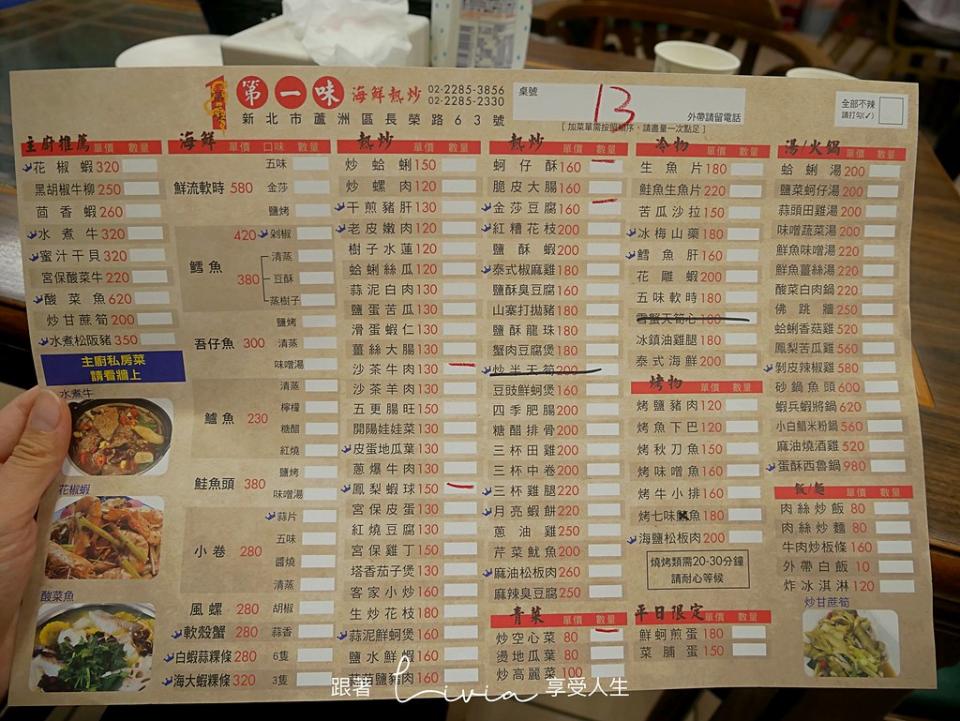 第一味 海鮮熱炒
02-2285-3856
02-2285-2330
新北市蘆洲區長榮路63號
桌號
13
外帶請留電話
[ 加菜單需按照順序、請盡量一次點足 ]
全部不辣
請打勾(✓)
主廚推薦 單價 數量
花椒蝦 320
黑胡椒牛柳 250
茴香蝦 260
水煮牛 320
蜜汁干貝 320
宮保酸菜牛 220
酸菜魚 620
炒甘蔗筍 200
水煮松阪豬 350
主廚私房菜
請看牆上
水煮牛
花椒蝦
酸菜魚
海鮮 單價 口味 數量
鮮流軟時 580
五味
金莎
鹽烤
鱈魚
420 剁椒
380
清蒸
豆酥
蒸樹子
吾仔魚 300
鹽烤
清蒸
味噌湯
鱸魚 230
清蒸
檸檬
糖醋
紅燒
鮭魚頭 380
鹽烤
味噌湯
小卷 280
蒜片
五味
醬燒
清蒸
風螺 280 胡椒
軟殼蟹 280 蒜香
白蝦蒜粿條 280 6隻
海大蝦粿條 320 3隻
熱炒 單價 數量
炒蛤蜊 150
炒螺肉 120
干煎豬肝 130
老皮嫩肉 120
樹子水蓮 120
蛤蜊絲瓜 120
蒜泥白肉 130
鹽蛋苦瓜 130
滑蛋蝦仁 130
薑絲大腸 130
沙茶牛肉 130
沙茶羊肉 130
五更腸旺 150
開陽娃娃菜 130
皮蛋地瓜葉 130
蔥爆牛肉 130
鳳梨蝦球 150
宮保皮蛋 130
紅燒豆腐 130
宮保雞丁 150
塔香茄子煲 130
客家小炒 160
生炒花枝 180
蒜泥鮮蚵煲 160
鹽水鮮蝦 160
蒜苗鹽豬肉 160
熱炒 單價 數量
蚵仔酥 160
脆皮大腸 160
金莎豆腐 160
紅糟花枝 200
鹽酥蝦 200
泰式椒麻雞 180
鹽酥臭豆腐 160
山寨打拋豬 180
鹽酥龍珠 180
蟹肉豆腐煲 180
炒半天筍 200
豆豉鮮蚵煲 160
四季肥腸 200
糖醋排骨 200
三杯田雞 200
三杯中卷 200
三杯雞腿 220
月亮蝦餅 220
蔥油雞 250
芹菜魷魚 200
麻油松板肉 260
麻辣臭豆腐 250
青菜 單價 數量
炒空心菜 80
燙地瓜葉 80
炒高麗菜 100
冷物 單價 數量
生魚片 180
鮭魚生魚片 220
苦瓜沙拉 150
冰梅山藥 180
鱈魚肝 160
花雕蝦 200
五味軟時 180
雪蟹天筍心 180
冰鎮油雞腿 180
泰式海鮮 200
烤物 單價 數量
烤鹽豬肉 120
烤魚下巴 120
烤秋刀魚 150
烤味噌魚 160
烤牛小排 160
烤七味魚 180
海鹽松板肉 200
燒烤類需20-30分鐘
請耐心等候
平日限定 單價 數量
鮮蚵煎蛋 180
菜脯蛋 150
湯/火鍋 單價 數量
蛤蜊湯 200
鹽菜蚵仔湯 200
蒜頭田雞湯 200
味噌蔬菜湯 200
鮮魚味噌湯 220
鮮魚薑絲湯 220
酸菜白肉鍋 220
佛跳牆 250
蛤蜊香菇雞 520
鳳梨苦瓜雞 560
剝皮辣椒雞 580
砂鍋魚頭 600
蝦兵蝦將鍋 620
小白鯧米粉鍋 560
麻油燒酒雞 520
蛋酥西魯鍋 980
飯/麵 單價 數量
肉絲炒飯 80
肉絲炒麵 80
牛肉炒板條 160
外帶白飯 10
炸冰淇淋 120
炒甘蔗筍
跟著 Livia 享受人生